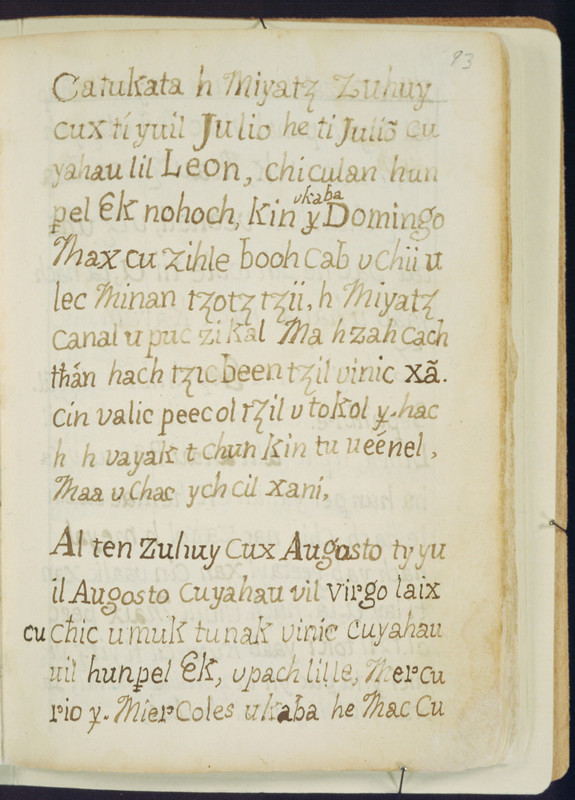 93
Catukata h Miyatz Zuhuy
cux ti yuil Julio he ti Julio cu
yahau lil Leon, chiculan hun
pel Ek nohoch, kin ukaba y Domingo
Max cu zihle booh Cab v chii u
lec Minan tzotz tzii, h Miyatz
canal u puc zi kal Ma h zah cach
than hach tzic been tzil vinic xã.
cin valic peec ol tzil v tokol y. hac
h h vayak t chun kin tu ueénel,
Maa v chac ych cil xani,
Al ten Zuhuy Cux Augosto ty yu
il Augosto Cuyahau vil virgo laix
cu chic u muk tunak vinic cuyahau
uil hunpel Ek, v pach lille, Mercu
rio y. Mier Coles u kaba he Mac Cu